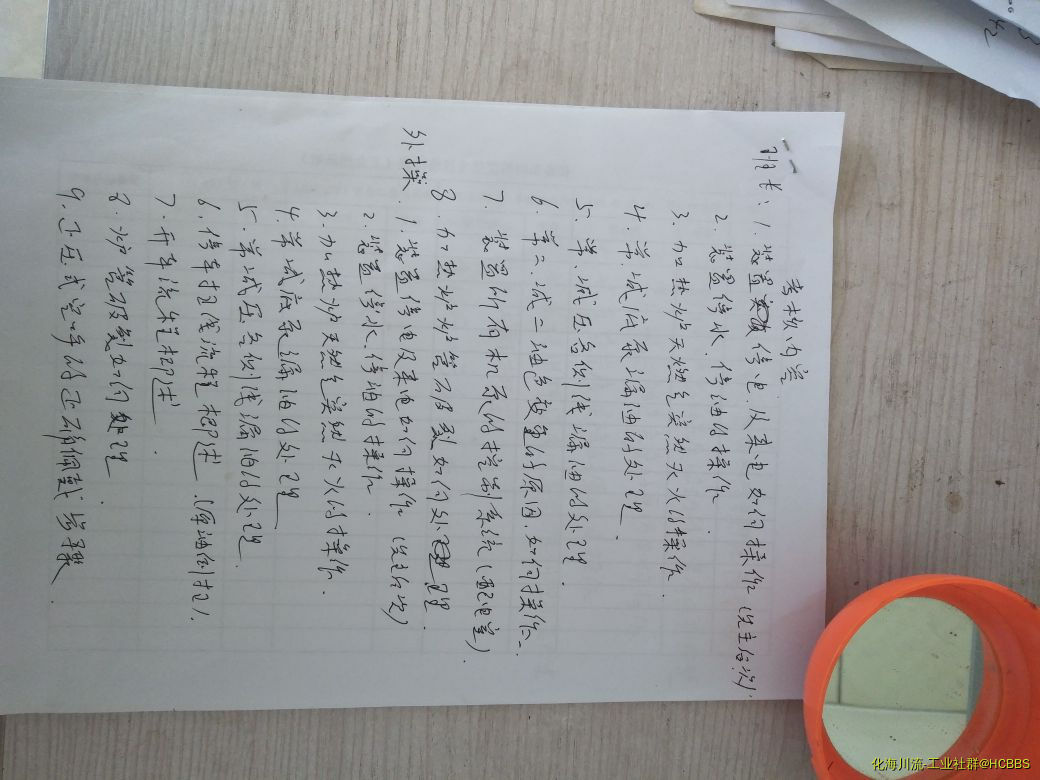 考核内容
班长：1. 装置停电. 及来电如何操作 (分主后次).
2. 装置停水. 停油的操作.
3. 加热炉天燃气突然灭火的操作.
4. 常.减底泵漏油的处理.
5. 常.减压各侧线漏油的处理.
6. 常二.减二油色变的原因. 如何操作.
7. 装置所有机泵的控制系统 (配电室).
8. 加热炉炉管破裂如何处理.
外操. 1. 装置停电及来电如何操作 (分主后次)
2. 装置停水. 停油的操作.
3. 加热炉天燃气突然灭火的操作.
4. 常减底泵漏油的处理
5. 常减压各侧线漏油的处理.
6. 停车扫线流程概述. (原油倒扫).
7. 开车流程概述.
8. 炉管破裂如何处理
9. 正压式空呼的正确佩戴步骤.
化海川流-工业社群@HCBBS